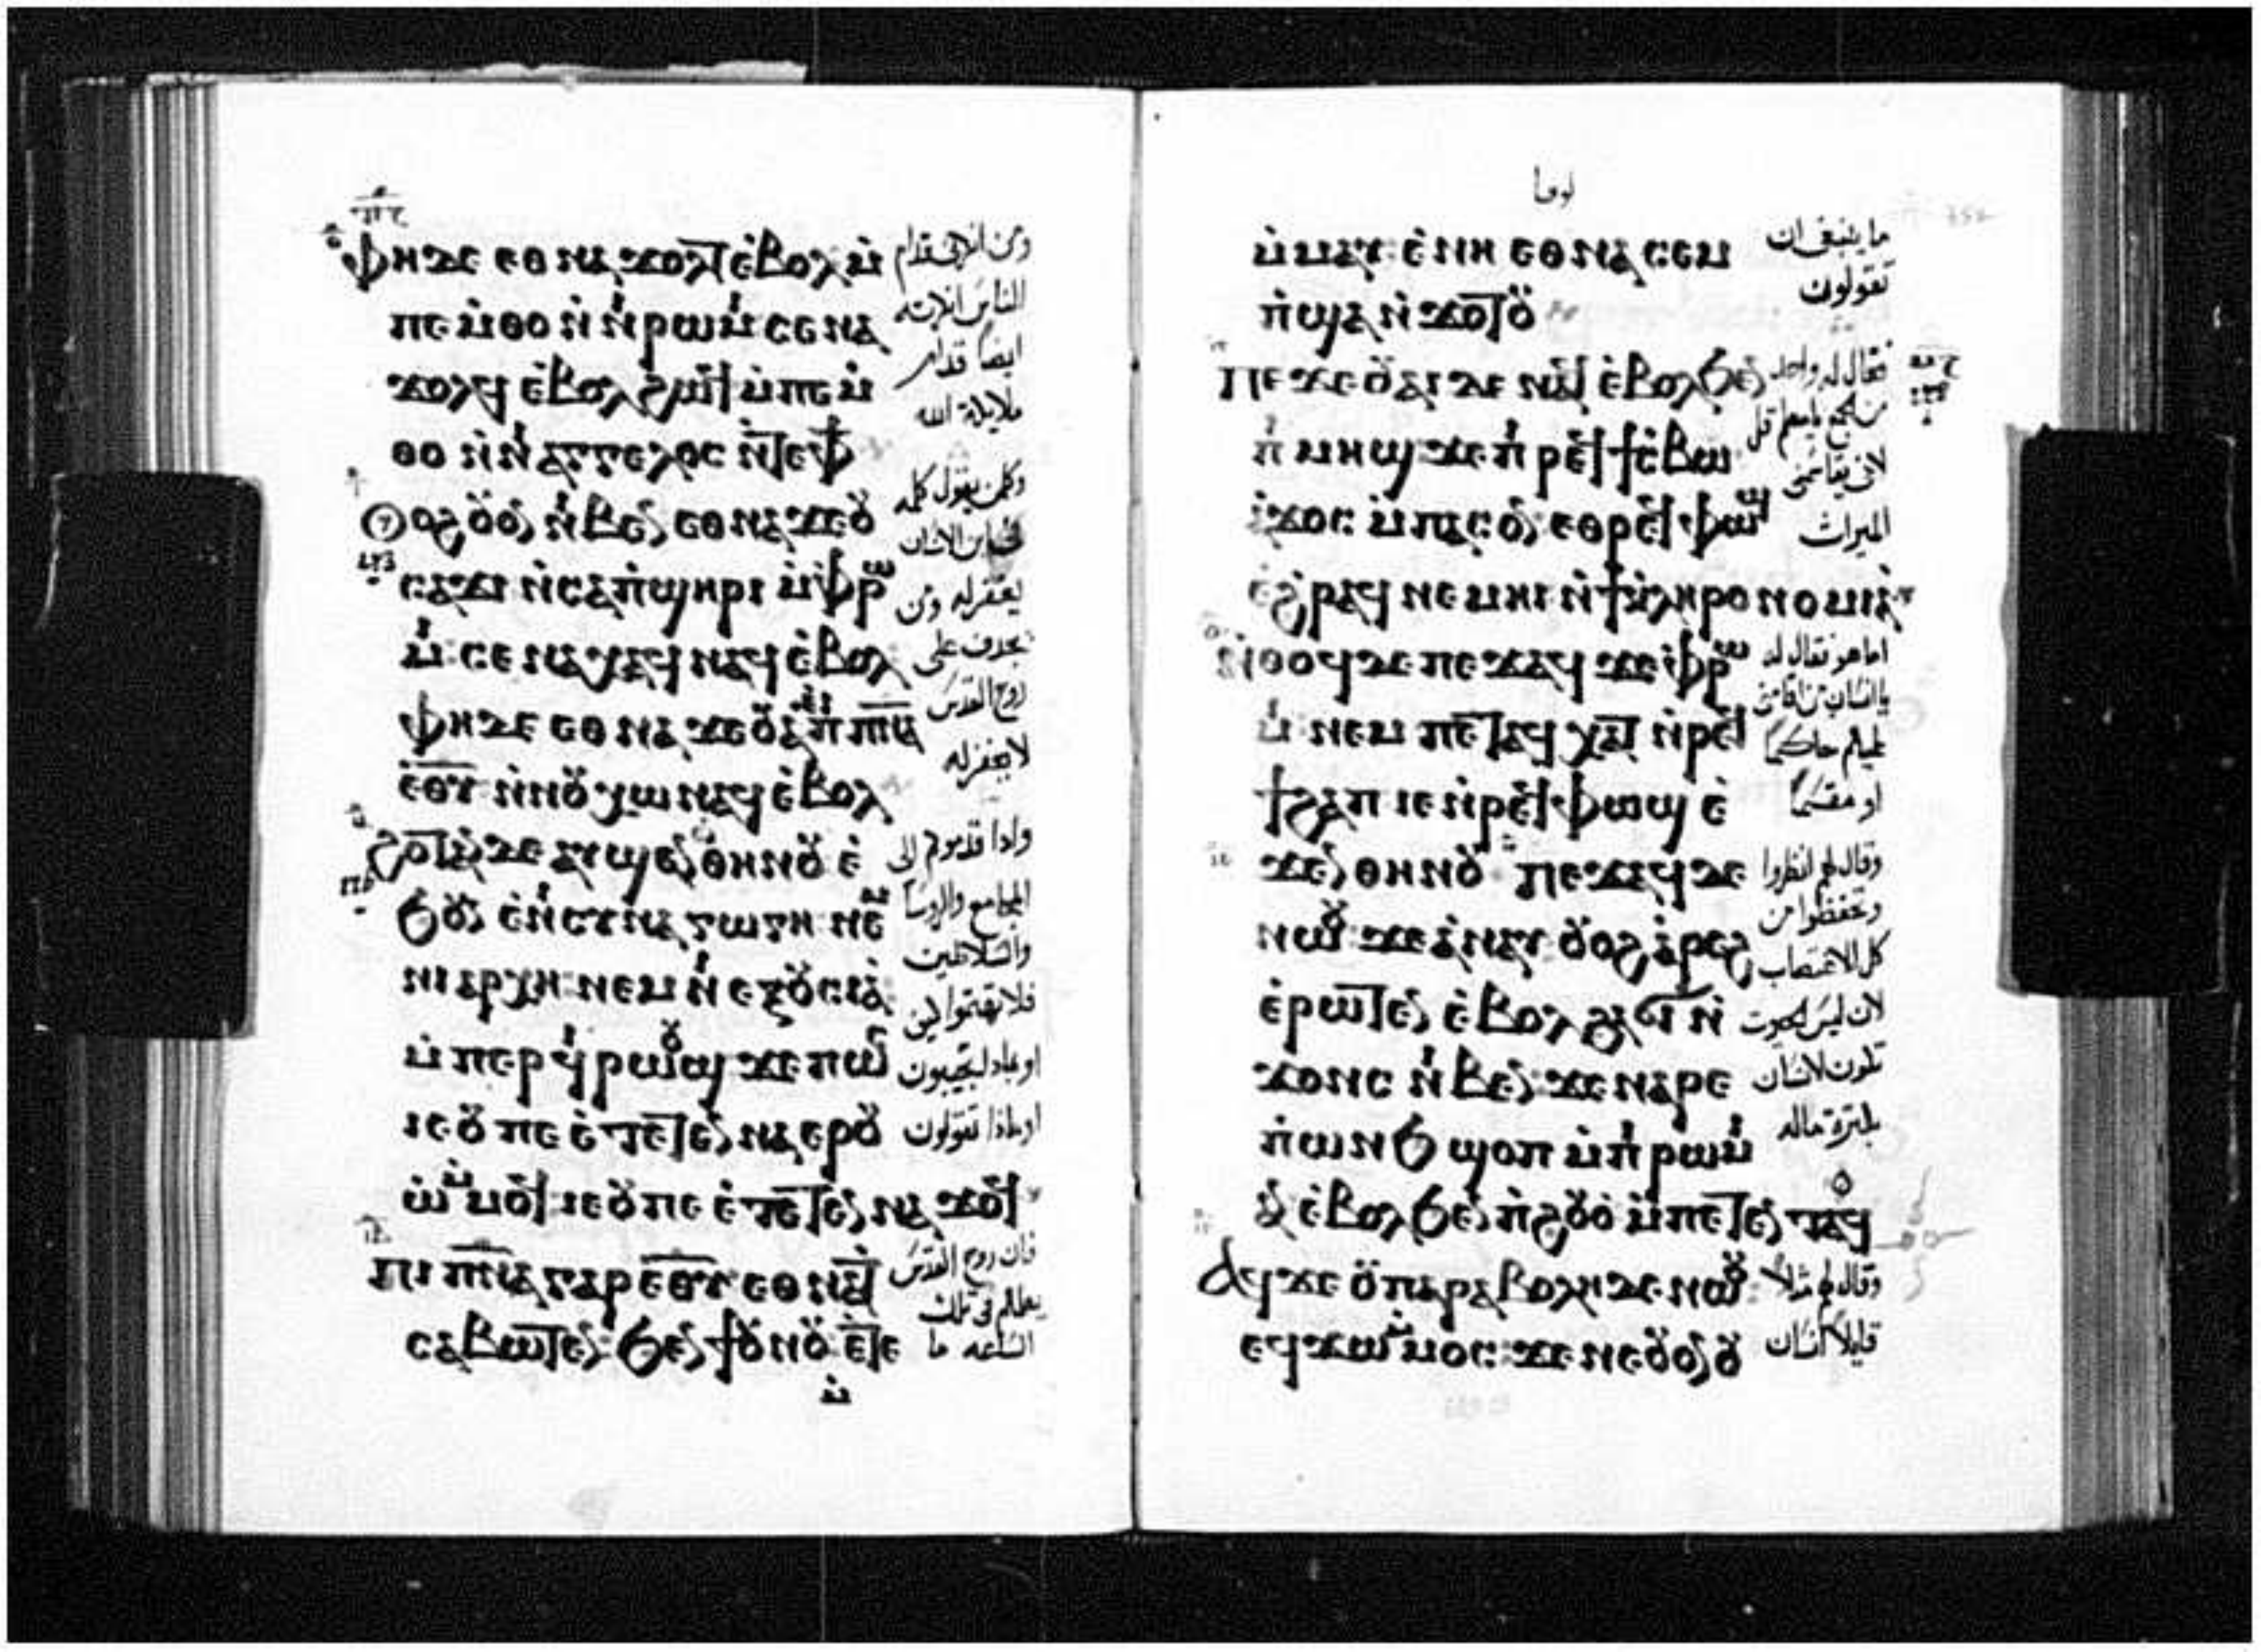 ⲫⲏ ⲇⲉ ⲉⲑⲛⲁϫⲟⲗⲧ ⲉⲃⲟⲗ ⲙ̀
ⲡⲉⲙ̀ⲑⲟ ⲛ̀ⲛⲓⲣⲱⲙⲓ ⲥⲉⲛⲁ
ϫⲟⲗϥ ⲉ̀ⲃⲟⲗ ϩⲱϥ ⲙ̀ⲡⲉⲙ̀
ⲑⲟ ⲛ̀ⲛⲓⲁⲅⲅⲉⲗⲟⲥ ⲛ̀ⲧⲉⲫϯ
ⲟⲩⲟϩ ⲟⲩⲟⲛ ⲛⲓⲃⲉⲛ ⲉⲑⲛⲁϫⲉⲟⲩ
ⲥⲁϫⲓ ⲛ̀ⲥⲁⲡ̀ϣⲏⲣⲓ ⲙ̀ⲫⲣⲱ
ⲙⲓ ⲥⲉⲛⲁⲭⲁϥ ⲛⲁϥ ⲉ̀ⲃⲟⲗ
ⲫⲏ ⲇⲉ ⲉⲑⲛⲁϫⲉⲟⲩⲁ̀ ⲉ̀ⲡⲓⲡⲛⲁ
ⲉⲑⲩ ⲛ̀ⲛⲟⲩⲭⲱ ⲛⲁϥ ⲉ̀ⲃⲟⲗ
ϩⲟⲧⲁⲛ ⲇⲉ ⲁⲩϣⲁⲛⲉⲛ ⲑⲏⲛⲟⲩ ⲉ̀
ϧⲟⲩⲛ ⲉ̀ⲛⲓⲥⲩⲛⲁⲅⲱⲅⲏ ⲛⲉⲙ
ⲛⲓⲁⲣⲭⲏ ⲛⲉⲙ ⲛⲓⲉⲝⲟⲩⲥⲓⲁ̀
ⲙ̀ⲡⲉⲣϥⲓⲣⲱⲟⲩϣ ϫⲉ ⲡⲱⲥ
ⲓⲉ ⲟⲩ ⲡⲉ ⲉ̀ⲧⲉⲧⲉⲛⲛⲁⲉⲣⲟⲩ
ⲱ̀ ⲙ̀ⲙⲟϥ ⲓⲉ ⲟⲩ ⲡⲉ ⲉ̀ⲧⲉⲧⲉⲛⲛⲁϫⲟϥ
ⲡⲓⲡⲛⲁ ⲅⲁⲣ ⲉⲑⲩ ⲉⲑⲛⲁⲧ
ⲥⲁⲃⲱⲧⲉⲛ ϧⲉⲛ ϯⲟⲩⲛⲟⲩ ⲉ̀ⲧⲉ
ⲙ̀
ومن انكرني قدام
الناس انكرته
ايضا قدام
ملايكة الله
وكلمن يقول كلمه
في ابن الانسان
يغفر له ومن
يجدف على
روح القدس
لا يغفر له
واذا قدموكم الى
المجامع والروسا
والسلاطين
فلا تهتموا كيف
او بماذا تجيبون
او ماذا تقولون
فان روح القدس
يعلمكم في تلك
الساعه ما
لوقا
ⲙ̀ⲙⲁⲩ ⲉ̀ⲛⲏ ⲉⲑⲛⲁⲥⲉⲙ
ⲡ̀ϣⲁ ⲛ̀ϫⲟⲧⲟⲩ
ⲡⲉϫⲉ ⲟⲩⲁⲓ ⲇⲉ ⲛⲁϥ ⲉ̀ⲃⲟⲗ ϧⲉⲛ
ⲡⲓⲙⲏϣ ϫⲉ ⲡⲓⲣⲉϥϯⲥ̀ⲃⲱ
ⲁ̀ϫⲟⲥ ⲙ̀ⲡⲁⲥⲟⲛ ⲉⲑⲣⲉϥⲫⲱϣ
ⲉϩⲣⲁϥ ⲛⲉⲙⲏⲓ ⲛ̀ϯⲕⲗⲏⲣⲟⲛⲟⲙⲓⲁ̀
ⲛ̀ⲑⲟϥ ⲇⲉ ⲡⲉϫⲁϥ ϫⲉ ⲫⲣⲱ
ⲙⲓ ⲛⲉⲙ ⲡⲉⲧⲁϥⲭⲁⲧ ⲛ̀ⲣⲉϥ
ϯϩⲁⲡ ⲓⲉ ⲛ̀ⲣⲉϥⲫⲱϣ ⲉ̀
ϫⲉⲛ ⲑⲏⲛⲟⲩ ⲡⲉϫⲁϥ ⲇⲉ
ⲛⲱⲟⲩ ϫⲉ ⲁ̀ⲛⲁⲩ ⲟⲩⲟϩ ⲁ̀ⲣⲉϩ
ⲉ̀ⲣⲱⲧⲉⲛ ⲉ̀ⲃⲟⲗ ϩⲁ ϭⲓ ⲛ̀
ϫⲟⲛⲥ ⲛⲓⲃⲉⲛ ϫⲉ ⲛⲁⲣⲉ
ⲡ̀ⲱⲛϧ ϣⲟⲡ ⲙ̀ⲡⲓⲣⲱⲙⲓ
ⲁⲛ ⲉ̀ⲃⲟⲗ ϧⲉⲛ ⲡ̀ϩⲟⲩⲟ̀ ⲙ̀ⲡⲉⲧⲉⲛⲧⲁϥ
ⲁϥϫⲉ ⲟⲩⲡⲁⲣⲁⲃⲟⲗⲏ ⲇⲉ ⲛⲱⲟⲩ
ⲉϥϫⲱ ⲙ̀ⲙⲟⲥ ϫⲉ ⲛⲉⲟⲩⲟⲛ ⲟⲩ
ما ينبغي ان
تقولون
فقال له واحد
من الجمع يا معلم قل
لاخي يقاسمني
الميراث
اما هو فقال له
يا انسان من اقامني
عليكم حاكما
او مقسما
وقال لهم انظروا
وتحفظوا من
كل الاغتصاب
لان ليس الحيوة
تكون لانسان
بكثرة ماله
وقال لهم مثلا
قايلا انسان